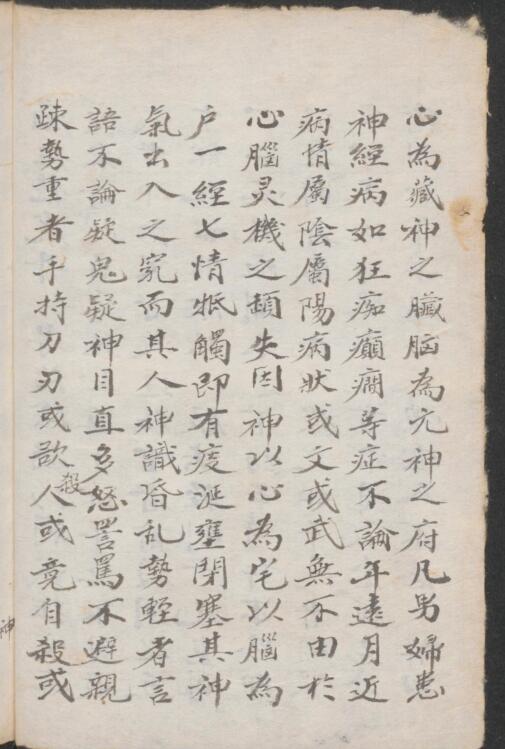 心為藏神之臟脑為元神之府凡男婦患
神經病如狂痴癲癇等症不論年遠月近
病情屬陰屬陽病狀或文或武無不由於
心腦灵機之頓失因神以心為宅以腦為
户一經七情牴觸即有痰涎壅閉塞其神
氣出入之竅而其人神識昏乱勢輕者言
語不論疑鬼疑神目直多怒詈罵不避親
疎勢重者手持刀刃或欲殺人或竟自殺或
神